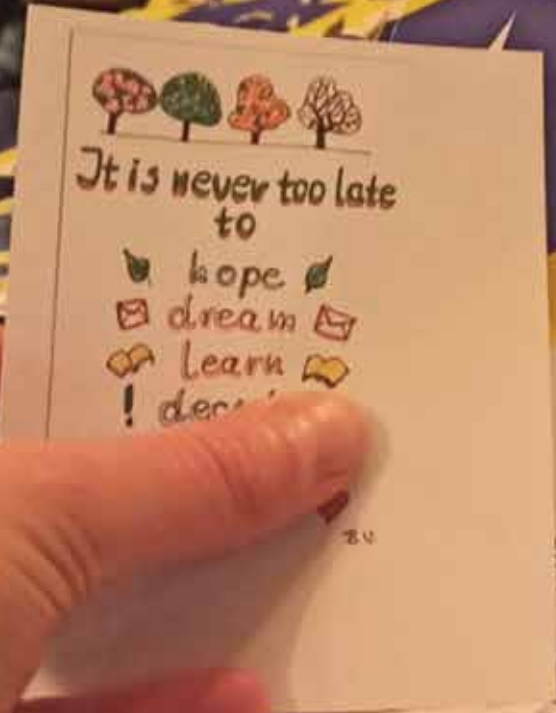 It is never too late
to
hope
dream
learn
B.V.